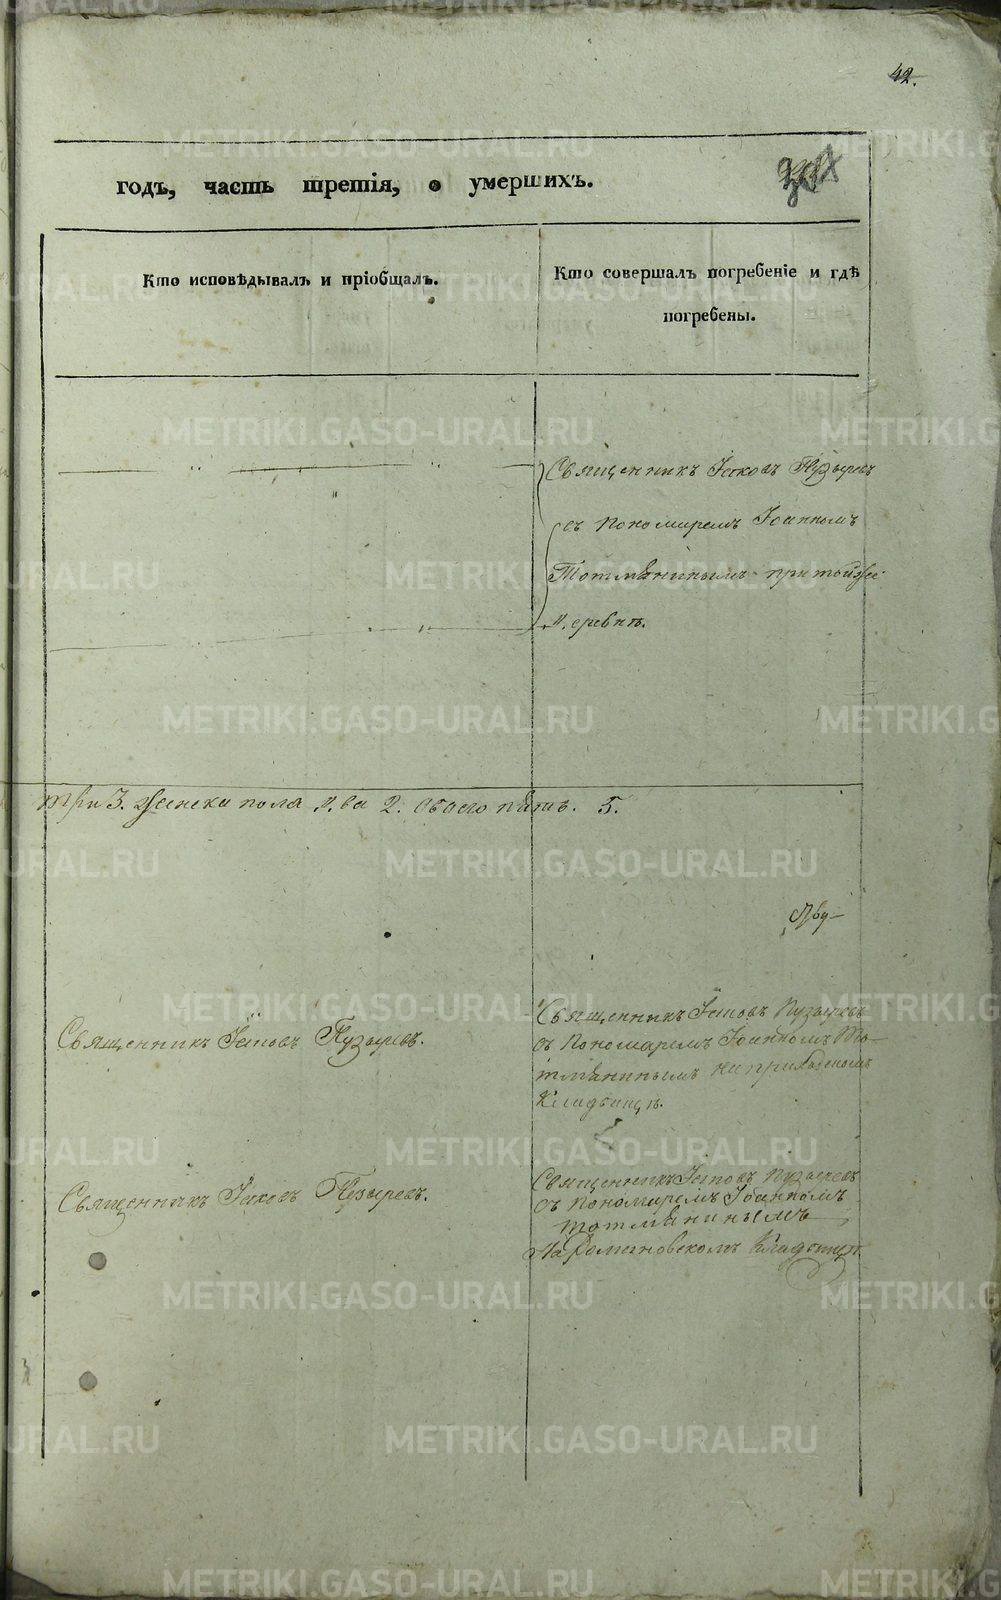 42.
годъ, часть третія, о умершихъ.
Кто исповѣдывалъ и пріобщалъ.
Кто совершалъ погребеніе и гдѣ
погребены.
Священникъ Іаковъ Пузыревъ
съ пономаремъ Іоанномъ
Тотмянинымъ при той же
деревнѣ.
три 3. женска пола два 2. обоего пять. 5.
Священникъ Іаковъ Пузыревъ.
Священникъ Іаковъ Пузыревъ
съ Пономаремъ Іоанномъ То-
тмянинымъ на приходскомъ
Кладбищѣ.
Священникъ Іаковъ Пузыревъ.
Священникъ Іаковъ Пузыревъ
съ Пономаремъ Іоанномъ
Тотмянинымъ
На Романовскомъ Кладбищѣ.
METRIKI.GASO-URAL.RU